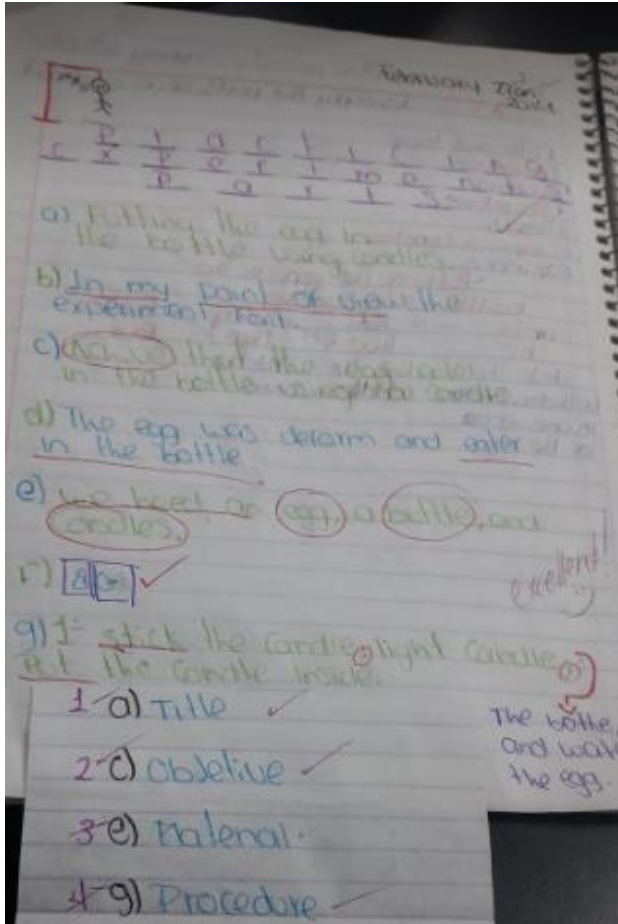 February
P l a r t i c i n g
E x p e r i m e n t
P a r t s
a) Putting the egg in
the bottle using candles.
b) In my point of view the
experiment
c) that the egg enter
in the bottle using the candle
d) The egg was deform and enter
in the bottle
e) we need an egg, a bottle, and
candles.
f)
excellent!
g) 1- stick the candle, light candle,
Put the candle inside.
The bottle,
and wait
the egg.
1- a) Title
2- c) Objetive
3- e) Material.
4- g) Procedure